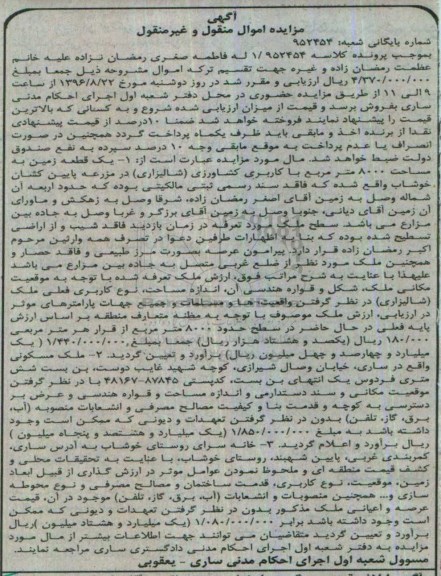 آگهی
مزایده اموال منقول و غیرمنقول
شماره بایگانی شعبه: ۹۵۲۴۵۴
بموجب پرونده کلاسه ۹۵۲۴۵۴ /۱ له فاطمه صغری رمضان نژاده علیه خانم
عظمت رمضان زاده و غیره جهت تقسیم ترکه اموال مشروحه ذیل جمعا بمبلغ
۴/۳۷۰/۰۰۰/۰۰۰ ریال ارزیابی و مقرر شد در روز دوشنبه مورخ ۱۳۹۶/۸/۲۲ از ساعت
۹ الی ۱۱ از طریق مزایده حضوری در محل دفتر شعبه اول اجرای احکام مدنی
ساری بفروش برسد و قیمت از میزان ارزیابی شده شروع و به کسانی که بالاترین
قیمت را پیشنهاد نمایند فروخته خواهد شد ضمنا ۱۰درصد از قیمت پیشنهادی
نقدا از برنده اخذ و مابقی باید ظرف یکماه پرداخت گردد همچنین در صورت
انصراف یا عدم پرداخت به موقع مابقی وجه ۱۰ درصد سپرده به نفع صندوق
دولت ضبط خواهد شد. مال مورد مزایده عبارت است از: ۱- یک قطعه زمین به
مساحت ۸۰۰۰ متر مربع با کاربری کشاورزی (شالیزاری) در مزرعه پایین کتشان
خوشاب واقع شده که فاقد سند رسمی ثبتی مالکیتی بوده که حدود اربعه آن
شماله وصل به زمین آقای اصغر رمضان زاده، شرقا وصل به زهکش و ماورای
آن زمین آقای دیانی، جنوبا وصل به زمین آقای برزگر و غربا وصل به جاده بین
مزارع می باشد. سطح ملک مورد تعرفه در زمان بازدید فاقد شیب و از اراضی
تسطیح شده بوده که بنا به اظهارات طرفین دعوا در تصرف همه وارثین مرحوم
اکبر رمضان زاده قرار دارد. پیرامون عرصه بصورت مرز طبیعی و فاقد حصار و
همچنین ملک مورد نظر از ضلع غربی متصل به جاده بین مزارع می باشد.
علیهذا با عنایت به شرح مراتب فوق، ارزش ملک تعرفه شده با توجه به موقعیت
مکانی ملک، شکل و قواره هندسی آن، اندازه مساحت، نوع کاربری فعلی ملک
(شالیزاری) در نظر گرفتن واقعیت ها و مستثنیات و جمیع جهات پارامترهای موثر
در ارزیابی، ارزش ملک موصوف با توجه به مظنه متعارف منطقه بر اساس ارزش
پایه فعلی در حال حاضر در سطح حدود ۸۰۰۰ متر مربع از قرار هر متر مربعی
۱۸۰/۰۰۰ ریال (یکصد و هشتاد هزار ریال) جمعا بمبلغ ۱/۴۴۰/۰۰۰/۰۰۰ ( یک
میلیارد و چهارصد و چهل میلیون ریال) برآورد و تعیین گردید. ۲- ملک مسکونی
واقع در ساری، خیابان وصال شیرازی، کوچه شهید غایب دوست، بن بست شش
متری فردوس یک انتهای بن بست، کدپستی ۸۷۸۴۵-۴۸۱۶۷ با در نظر گرفتن
موقعیت مکانی و سند دستدارمی و اندازه مساحت و قواره هندسی و عرض بر
دسترسی به کوچه و قدمت بنا و کیفیت مصالح مصرفی و انشعابات منصوبه (آب،
برق، گاز، تلفن) بدون در نظر گرفتن تعهدات و دیونی که ممکن است وجود
داشته باشد به مبلغ ۱/۸۵۰/۰۰۰/۰۰۰ (یک میلیارد و هشتصد و پنجاه میلیون )
ریال برآورد و اعلام گردید. ۳- خانه سرای روستایی خوشاب به آدرس ساری،
کمربندی غربی، پایین شهبند، روستای خوشاب، با عنایت به تحقیقات محلی و
کشف قیمت منطقه ای و ملحوظ نمودن عوامل موثر در ارزش گذاری از قبیل ابعاد
زمین، موقعیت، نوع کاربری، قدمت ساختمان و مصالح مصرفی و نوع محوطه
سازی و... همچنین منصوبات و انشعابات (آب، برق، گاز، تلفن) موجود در آن، قیمت
عرصه و اعیانی ملک مذکور بدون در نظر گرفتن تعهدات و دیونی که ممکن
است وجود داشته باشد برابر ۱/۰۸۰/۰۰۰/۰۰۰ (یک میلیارد و هشتاد میلیون )ریال
برآورد و تعیین گردید متقاضیان می توانند جهت اطلاعات بیشتر از مال مورد
مزایده به دفتر شعبه اول اجرای احکام مدنی دادگستری ساری مراجعه نمایند.
مسوول شعبه اول اجرای احکام مدنی ساری - یعقوبی